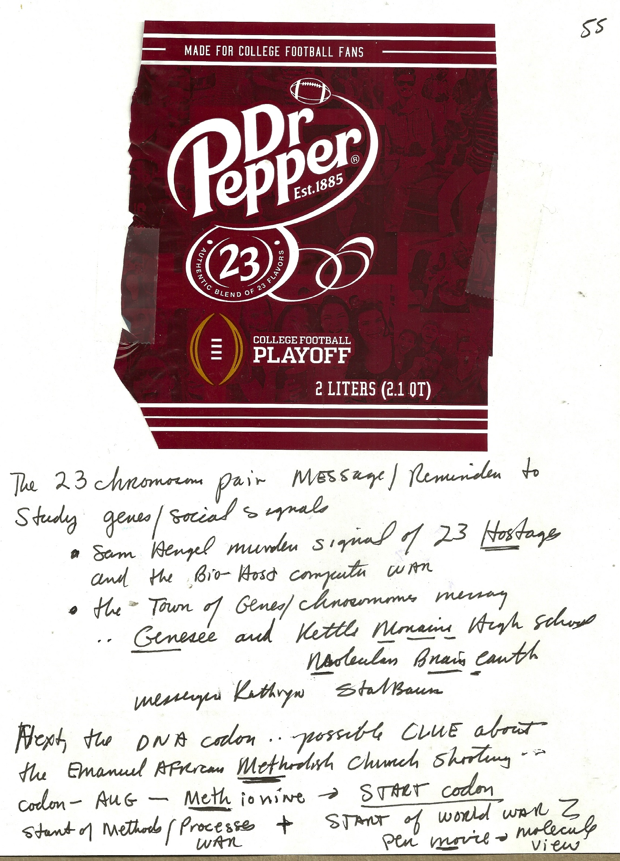 55
MADE FOR COLLEGE FOOTBALL FANS
Dr
Pepper®
Est.1885
23
AUTHENTIC BLEND OF 23 FLAVORS
COLLEGE FOOTBALL
PLAYOFF
2 LITERS (2.1 QT)
The 23 chromosom pair MESSAGE/Reminder to
Study genes/social signals
• Sam Hengel murder signal of 23 Hostages
and the Bio-Host computer WAR
• the Town of Genes/chromosomes messag
.. Genesee and Kettle Moraine High school
Molecular Brain earth
messenger Kathryn StalBaum
Next, the DNA codon .. possible CLUE about
the Emanuel AFRican Methodish Church Shooting ..
codon - AUG - Meth ionine → START codon
Start of Methods/Processes WAR + START of World WAR Z
per movie → molecule view